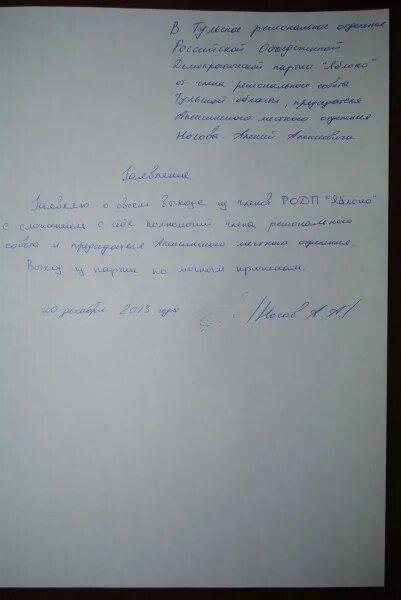 В Тульское региональное отделение
Российской Объединенной
Демократической партии "Яблоко"
от члена регионального совета
Тульской области, председателя
Алексинского местного отделения
Носова Алексея Алексеевича
Заявление
Заявляю о своем выходе из членов РОДП "Яблоко"
с сложением с себя полномочий члена регионального
совета и председателя Алексинского местного отделения.
Выход из партии по личным причинам.
20 декабря 2013 года /Носов А. А./